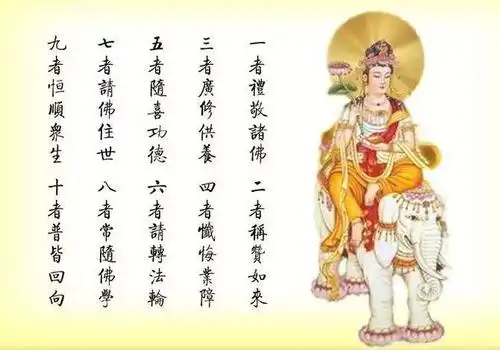 一者禮敬諸佛
二者稱贊如來
三者廣修供養
四者懺悔業障
五者隨喜功德
六者請轉法輪
七者請佛住世
八者常隨佛學
九者恒順眾生
十者普皆回向